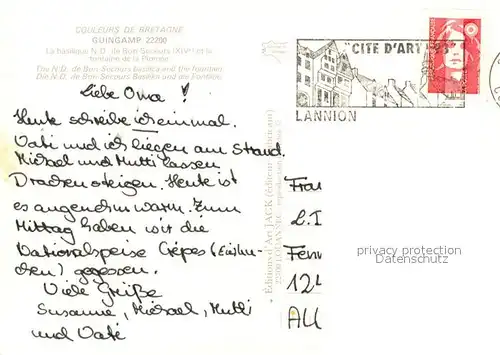 COULEURS DE BRETAGNE
GUINGAMP 22200
La basilique N.D. de Bon Secours (XIVe) et la
fontaine de la Plomée
The N.D. de Bon Secours Basilica and the Fountain
Die N.D. de Bon Secours Basilika und die Fontäne
"CITE D'ART
LANNION
Liebe Oma!
Heute schreibe ich einmal.
Vati und ich liegen am Strand.
Michael und Mutti lassen
Drachen steigen. Heute ist
es angenehm warm. Zum
Mittag haben wir die
Nationalspeise Crêpes (Eierku-
chen) gegessen.
Viele Grüße
Susanne, Michael, Mutti
und Vati
Editions d'Art JACK
Frau
L.
12
privacy protection
Datenschutz